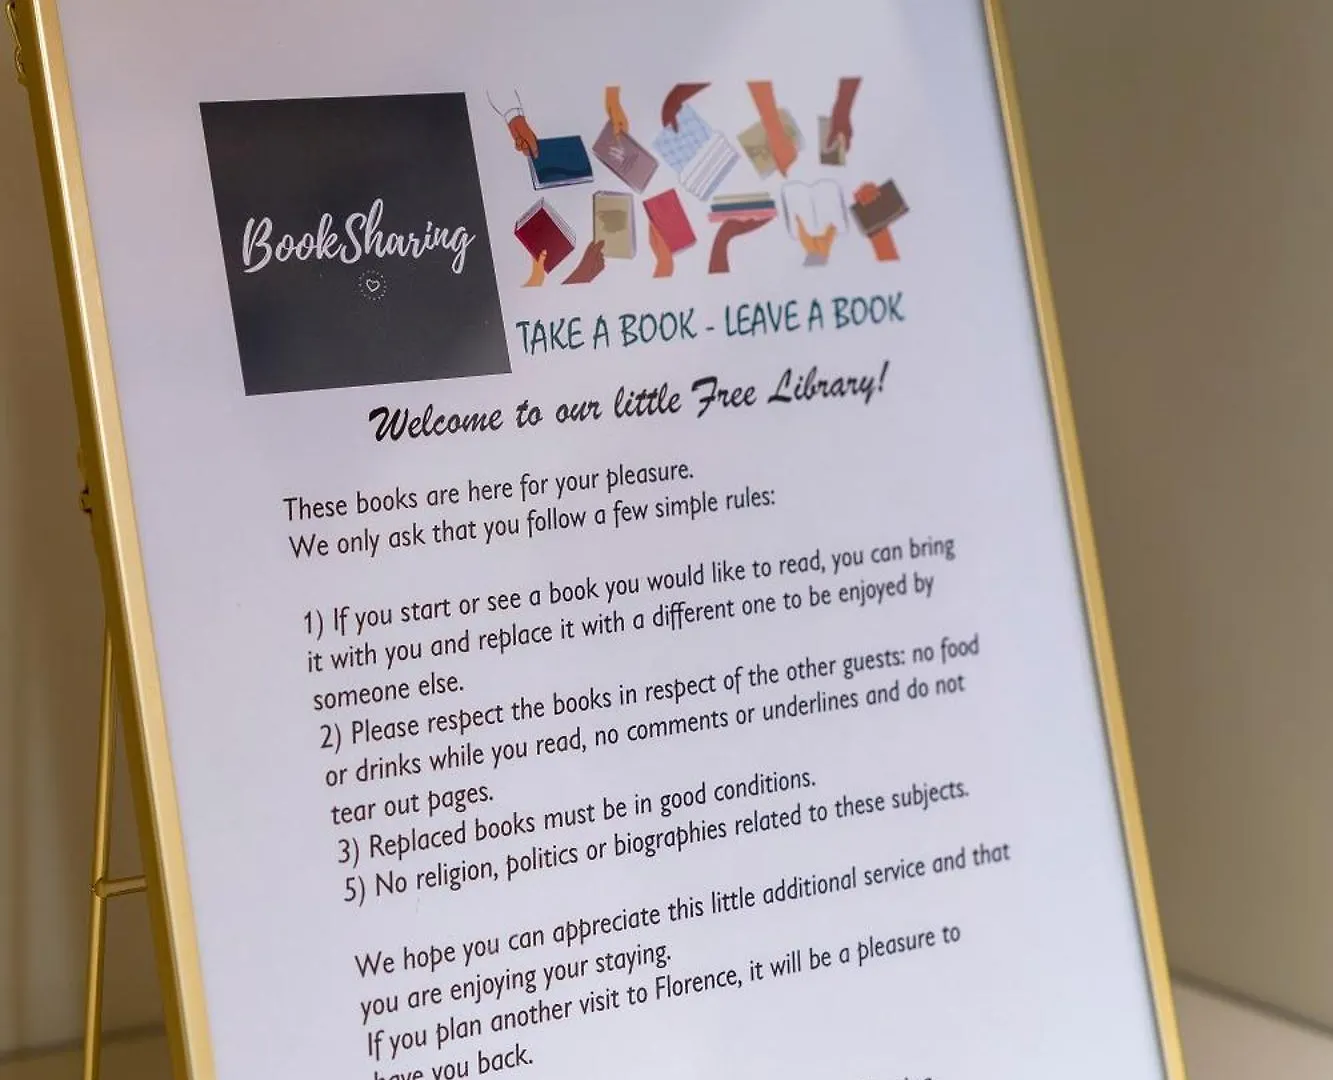 BookSharing
TAKE A BOOK - LEAVE A BOOK
Welcome to our little Free Library!
These books are here for your pleasure.
We only ask that you follow a few simple rules:
1) If you start or see a book you would like to read, you can bring
it with you and replace it with a different one to be enjoyed by
someone else.
2) Please respect the books in respect of the other guests: no food
or drinks while you read, no comments or underlines and do not
tear out pages.
3) Replaced books must be in good conditions.
5) No religion, politics or biographies related to these subjects.
We hope you can appreciate this little additional service and that
you are enjoying your staying.
If you plan another visit to Florence, it will be a pleasure to
have you back.